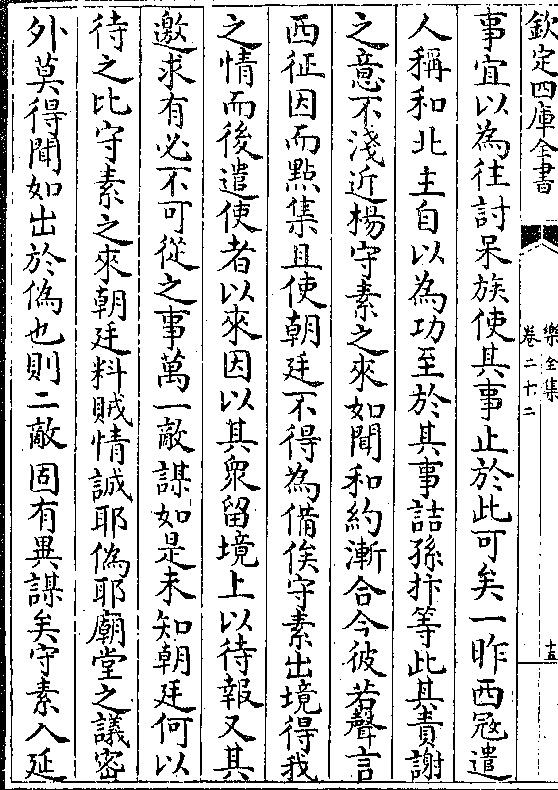 欽定四庫全書
樂全集
卷二十二
十五
事宜以為往討呆族使其事止於此可矣一昨西冦遣
人稱和北主自以為功至於其事詰孫抃等此其責謝
之意不淺近楊守素之來如聞和約漸合今彼若聲言
西征因而點集且使朝廷不得為備俟守素出境得我
之情而後遣使者以來因以其衆留境上以待報又其
邀求有必不可從之事萬一敵謀如是未知朝廷何以
待之比守素之來朝廷料賊情誠耶偽耶廟堂之議密
外莫得聞如出於偽也則二敵固有異謀矣守素入延